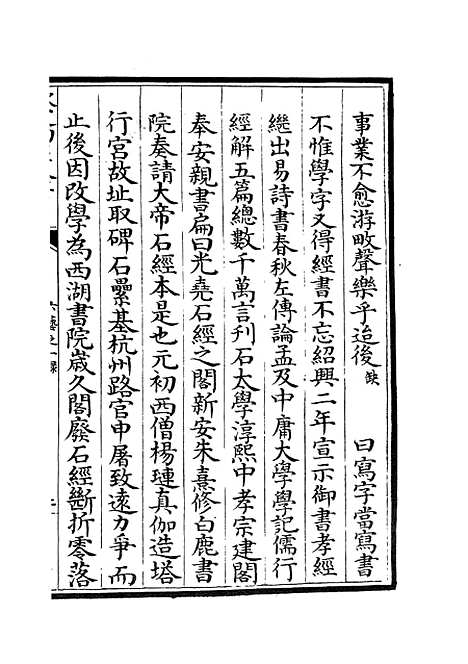 事業不愈游畋聲樂乎迨後缺　曰寫字當寫書
不惟學字又得經書不忘紹興二年宣示御書孝經
繼出易詩書春秋左傳論孟及中庸大學學記儒行
經解五篇總數千萬言刋石太學淳熙中孝宗建閣
奉安親書扁曰光堯石經之閣新安朱熹修白鹿書
院奏請大帝石經本是也元初西僧楊璉真伽造塔
行宮故址取碑石壘基杭州路官申屠致遠力爭而
止後因改學為西湖書院嵗久閣廢石經斷折零落
六藝之一録